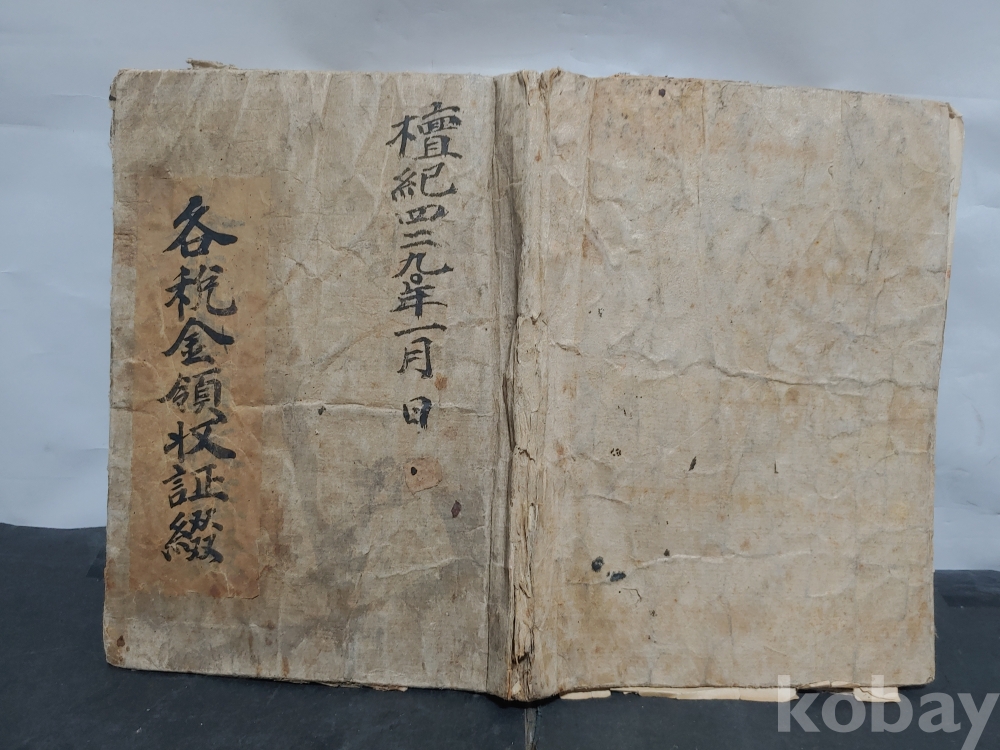 檀紀四二九〇年一月 日
各税金領収証綴
kobay